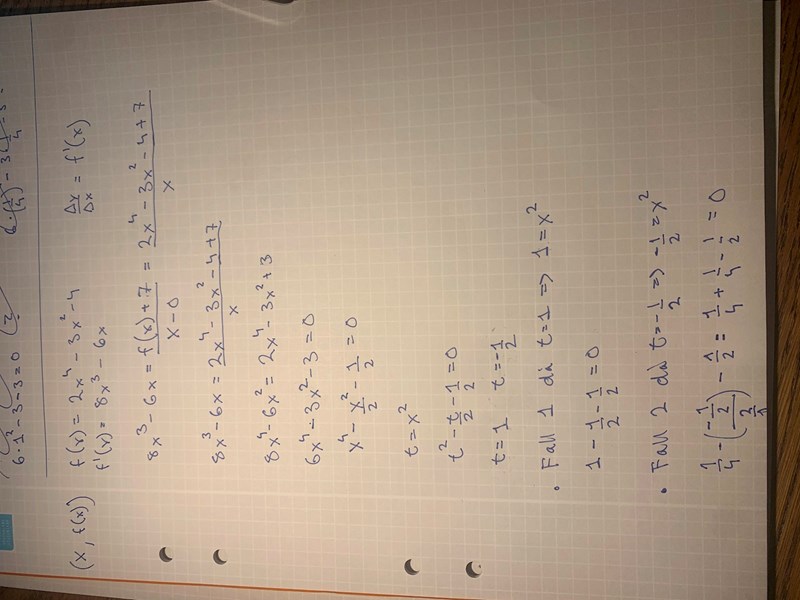 6·1² - 3 - 3 = 0
(x, f(x)) f(x) = 2x⁴ - 3x² - 4 Δy/Δx = f'(x)
f'(x) = 8x³ - 6x
8x³ - 6x = (f(x) + 7)/(x - 0) = (2x⁴ - 3x² - 4 + 7)/x
8x³ - 6x = (2x⁴ - 3x² - 4 + 7)/x
8x⁴ - 6x² = 2x⁴ - 3x² + 3
6x⁴ - 3x² - 3 = 0
x⁴ - x²/2 - 1/2 = 0
t = x²
t² - t/2 - 1/2 = 0
t = 1 t = -1/2
• Fall 1 då t = 1 => 1 = x²
1 - 1/2 - 1/2 = 0
• Fall 2 då t = -1/2 => -1/2 = x²
1/4 - (-1/2)/(2/1) - 1/2 = 1/4 + 1/4 - 1/2 = 0